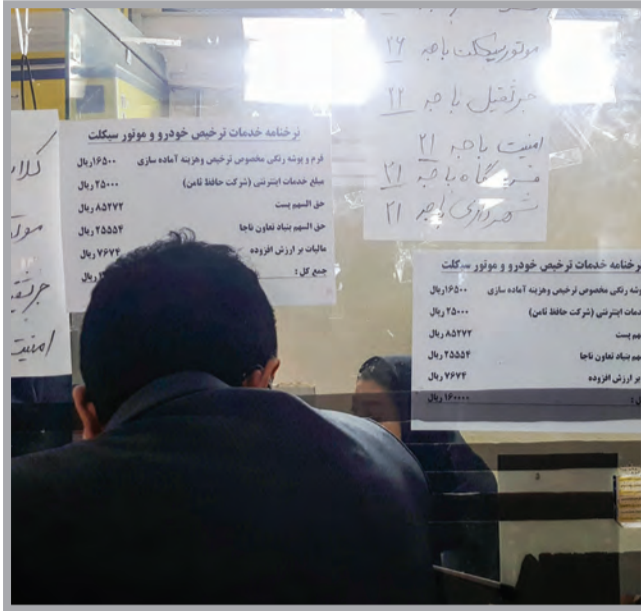 موتورسیکلت باجه ۲۶
جرثقیل باجه ۲۲
امنیت باجه ۲۱
باجه ۲۱
شهرداری باجه ۲۱
نرخنامه خدمات ترخیص خودرو و موتور سیکلت
فرم و پوشه رنگی مخصوص ترخیص وهزینه آماده سازی ۱۶۵۰۰ریال
مبلغ خدمات اینترنتی (شرکت حافظ ثامن) ۲۵۰۰۰ ریال
حق السهم پست ۸۵۲۷۲ ریال
حق السهم بنیاد تعاون ناجا ۲۵۵۵۴ ریال
مالیات بر ارزش افزوده ۷۶۷۴ ریال
جمع کل : ریال
امنیت
رخنامه خدمات ترخیص خودرو و موتور سیکلت
وشه رنگی مخصوص ترخیص وهزینه آماده سازی ۱۶۵۰۰ریال
دمات اینترنتی (شرکت حافظ ثامن) ۲۵۰۰۰ ریال
هم پست ۸۵۲۷۲ ریال
هم بنیاد تعاون ناجا ۲۵۵۵۴ ریال
بر ارزش افزوده ۷۶۷۴ ریال
ل : ۱۶۰۰۰۰ ریال